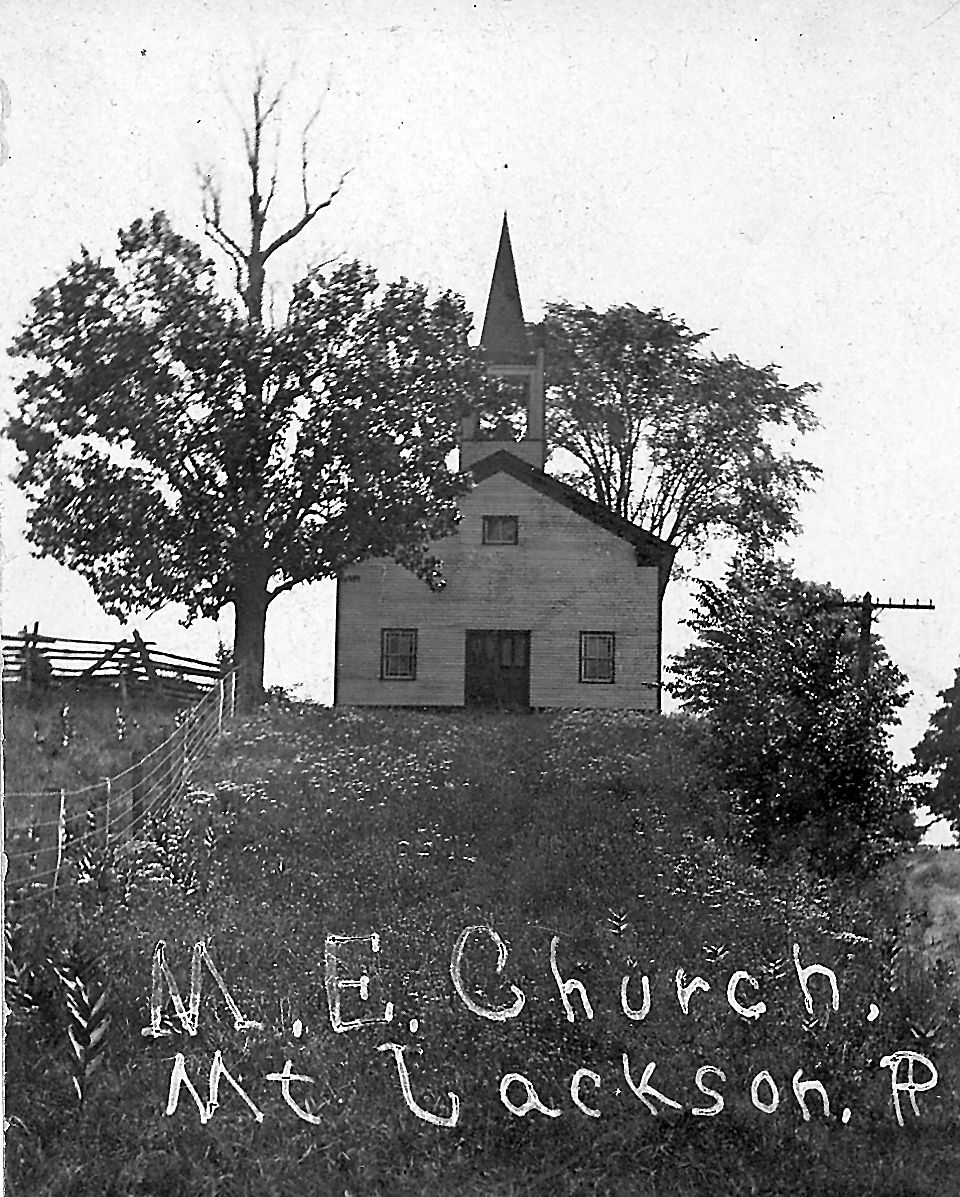 M.E. Church,
Mt Jackson, P